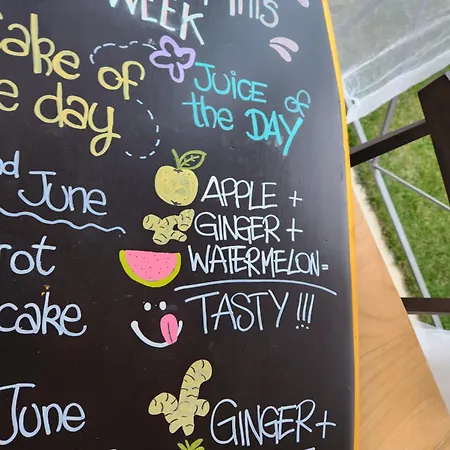 this
WEEK
Cake of
the day
Juice of
the DAY
June
APPLE +
GINGER +
WATERMELON=
cake
TASTY !!!
June
GINGER+